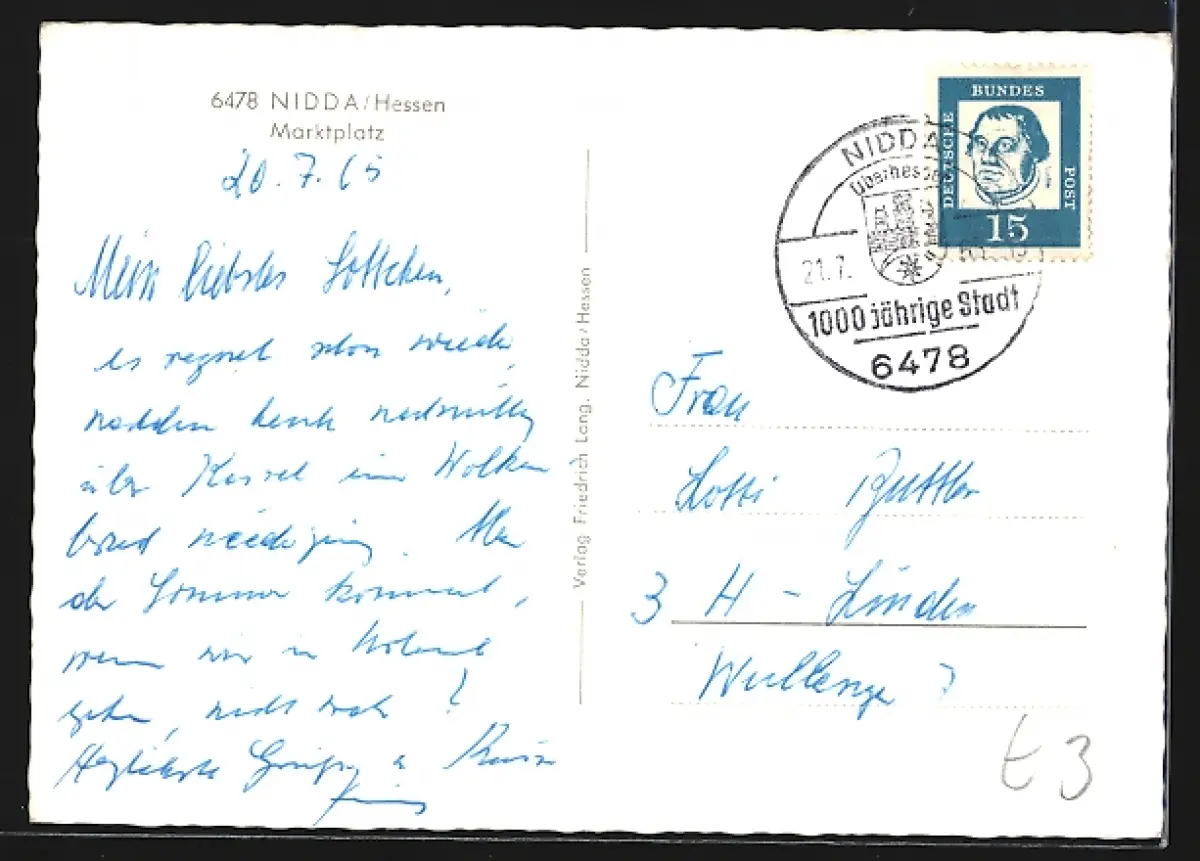 6478 NIDDA/Hessen
Marktplatz
20.7.65
Mein liebstes Lottchen,
es regnet schon wieder,
nachdem heute nachmittag
über Kassel ein Wolken-
bruch niederging. Aber
der Sommer kommt,
wenn wir in Urlaub
gehen, nicht wahr?
Herzlichste Grüße u. Küsse
Verlag Friedrich Lang, Nidda/Hessen
NIDDA
Oberhessen
21.7.
1000 jährige Stadt
6478
DEUTSCHE
BUNDES
POST
15
Frau
Lotti
3 H - Linden
t 3